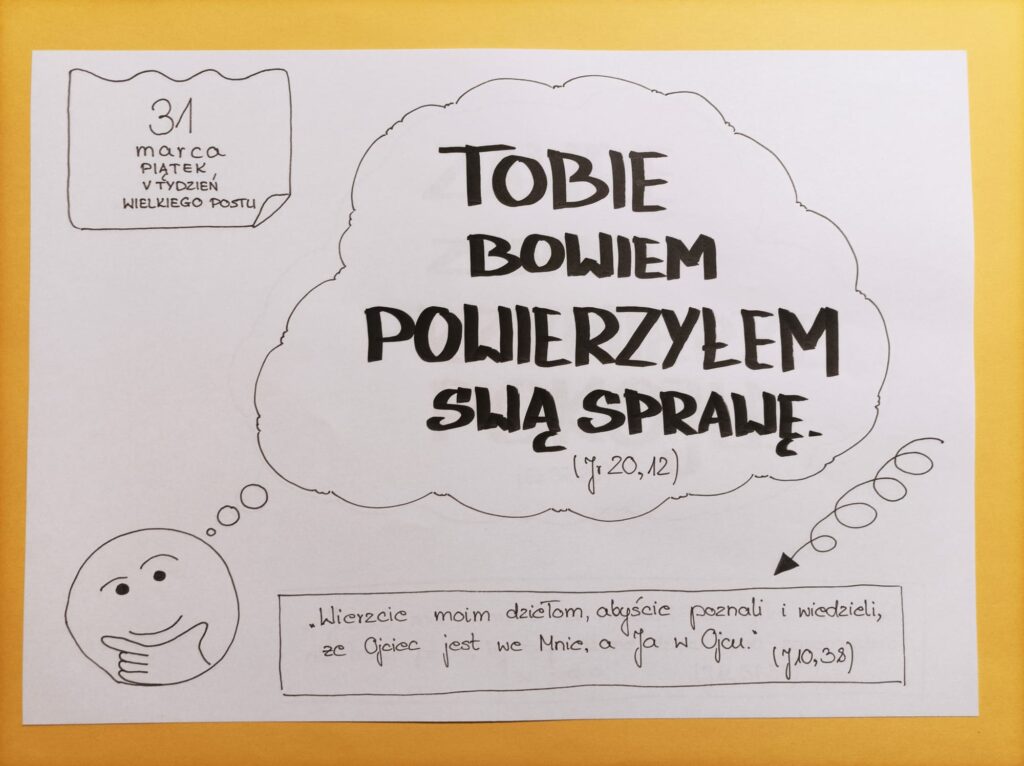 31
marca
PIĄTEK,
V TYDZIEŃ
WIELKIEGO POSTU
TOBIE
BOWIEM
POWIERZYŁEM
SWĄ SPRAWĘ.
(Jr 20, 12)
„Wierzcie moim dziełom, abyście poznali i wiedzieli,
że Ojciec jest we Mnie, a Ja w Ojcu.”
(J 10, 38)